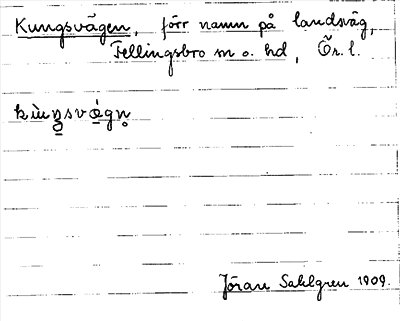 Kungsvägen, förr namn på landsväg,
Fellingsbro sn o. hd, Ör. l.
Jöran Sahlgren 1909.